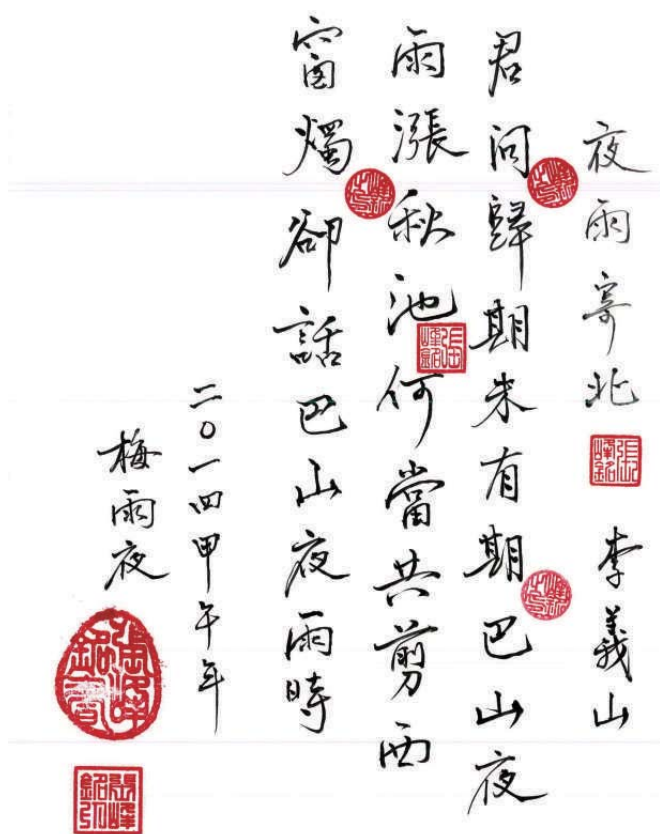 夜雨寄北 張峰銘 李義山
君問歸期未有期巴山夜
雨漲秋池何當共剪西
窗燭卻話巴山夜雨時
二〇一四甲午年
梅雨夜
張峰銘印